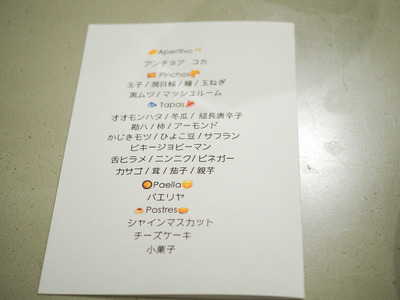 Aperitivo
アンチョア コカ
Pinchos
玉子 / 潤目鰯 / 鰻 / 玉ねぎ
黒ムツ / マッシュルーム
Tapas
オオモンハタ / 冬瓜 / 紐長唐辛子
勘八 / 柿 / アーモンド
かじきモツ / ひよこ豆 / サフラン
ビキージョピーマン
舌ヒラメ / ニンニク / ビネガー
カサゴ / 茸 / 茄子 / 親芋
Paella
パエリヤ
Postres
シャインマスカット
チーズケーキ
小菓子